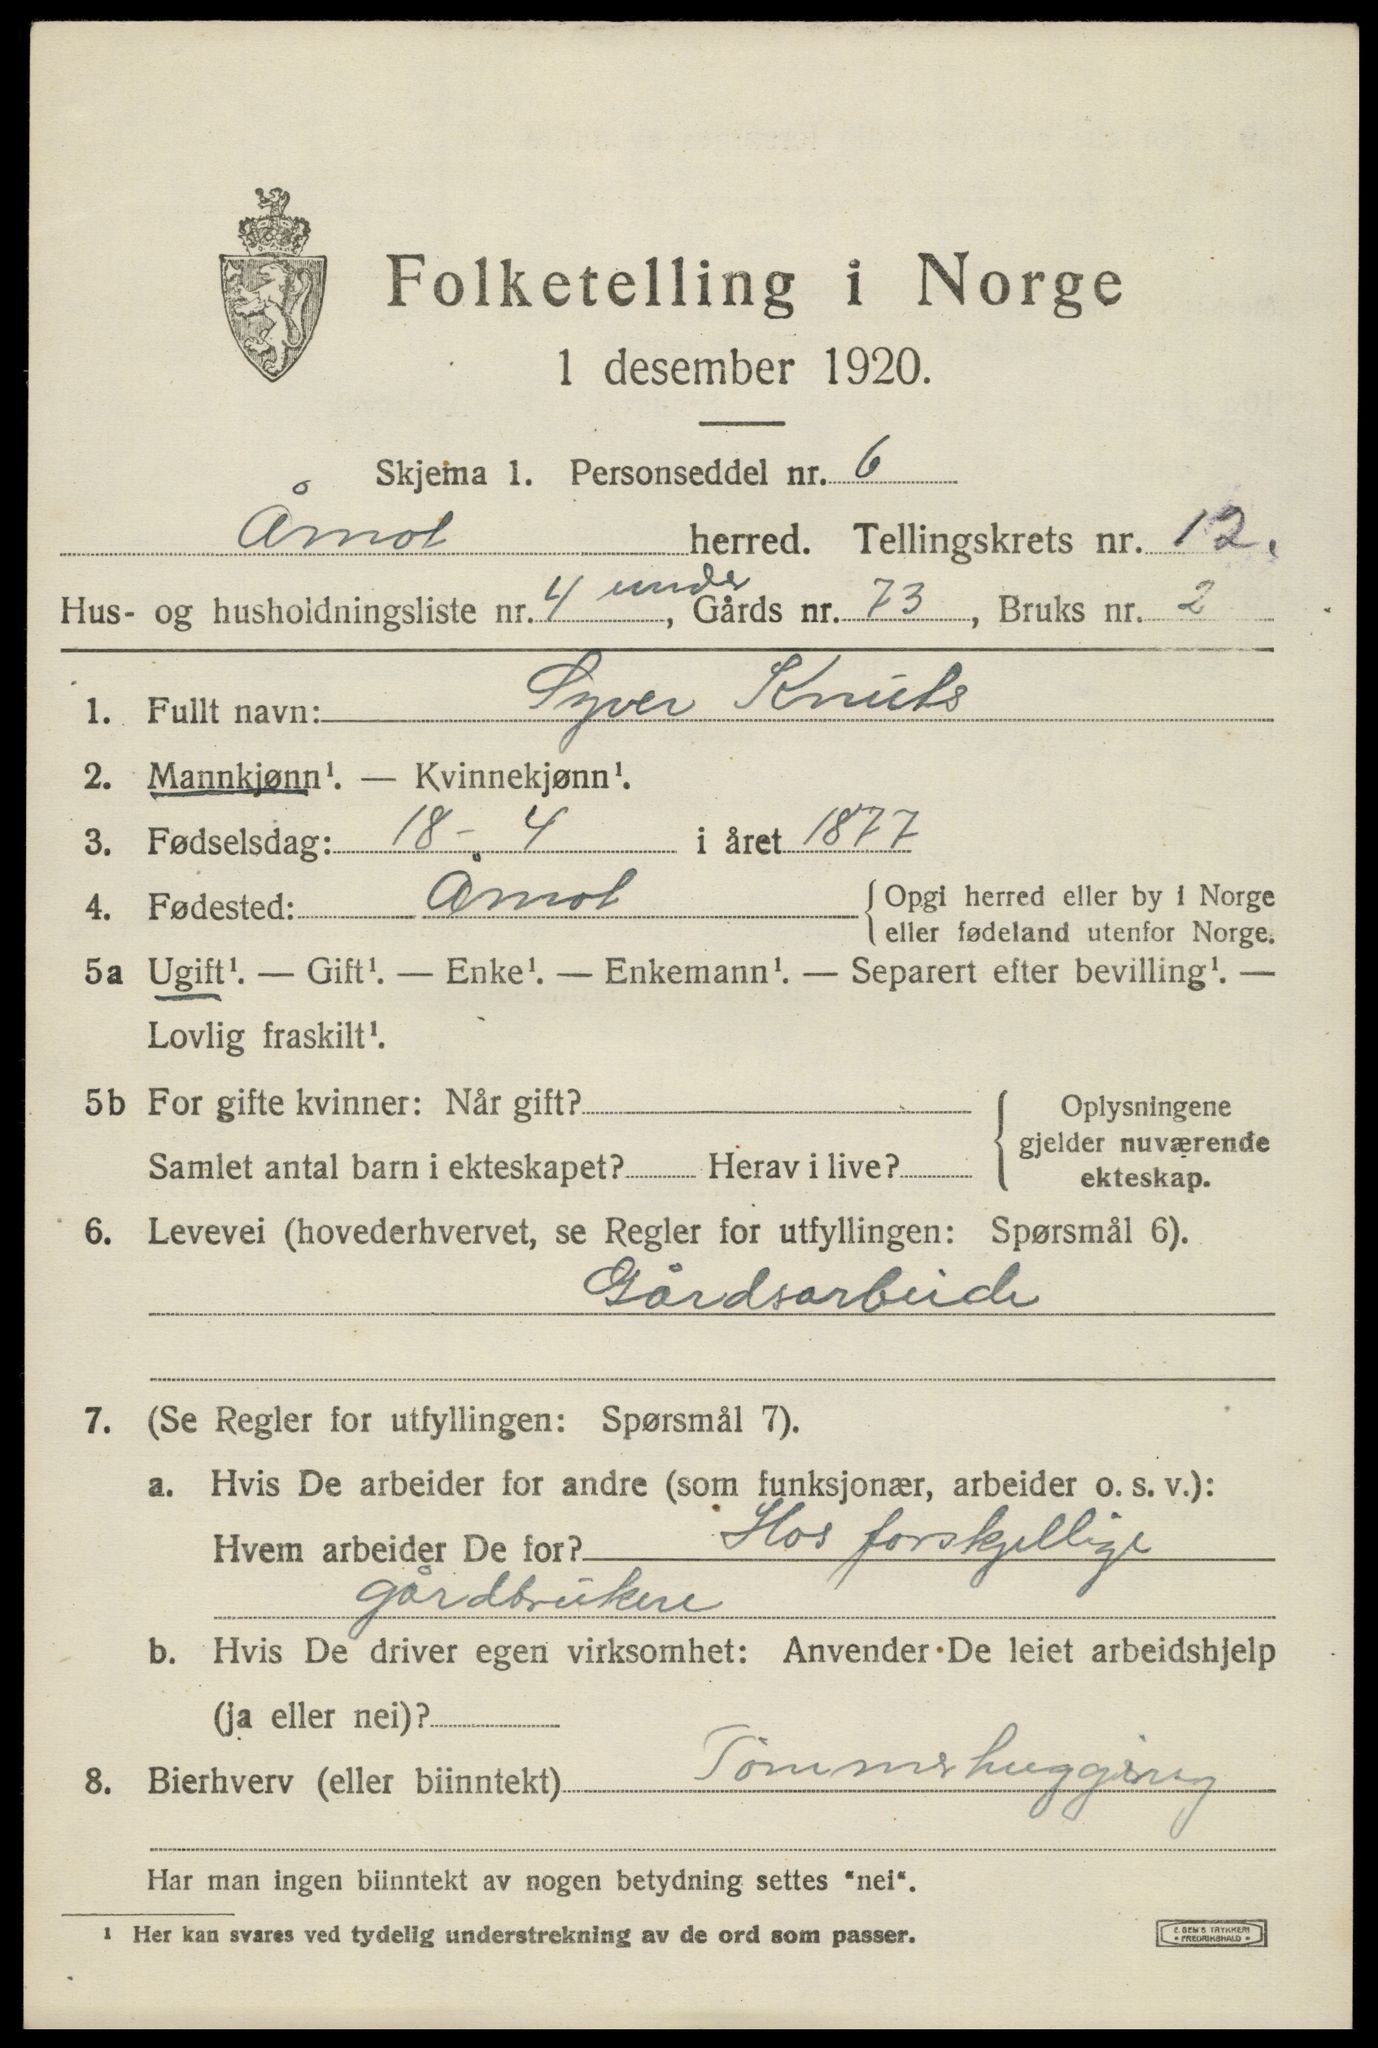 Folketelling i Norge
1 desember 1920.
Skjema 1. Personseddel nr. 6
Åmot herred. Tellingskrets nr. 12.
Hus- og husholdningsliste nr. 4 under, Gårds nr. 73, Bruks nr. 2
1. Fullt navn: Syver Knuts
2. Mannkjønn¹. — Kvinnekjønn¹.
3. Fødselsdag: 18 - 4 i året 1877
4. Fødested: Åmot {Opgi herred eller by i Norge
eller fødeland utenfor Norge.
5a Ugift¹. — Gift¹. — Enke¹. — Enkemann¹. — Separert efter bevilling¹. —
Lovlig fraskilt¹.
5b For gifte kvinner: Når gift? { Oplysningene
gjelder nuværende
Samlet antal barn i ekteskapet? Herav i live?
ekteskap.
6. Levevei (hovederhvervet, se Regler for utfyllingen: Spørsmål 6).
Gårdsarbeide
7. (Se Regler for utfyllingen: Spørsmål 7).
a. Hvis De arbeider for andre (som funksjonær, arbeider o. s. v.):
Hvem arbeider De for? Hos forskjellige
gårdbrukere
b. Hvis De driver egen virksomhet: Anvender De leiet arbeidshjelp
(ja eller nei)?
8. Bierhverv (eller biinntekt) Tømmerhugging
Har man ingen biinntekt av nogen betydning settes "nei".
¹ Her kan svares ved tydelig understrekning av de ord som passer.
FREDRIKSHALD